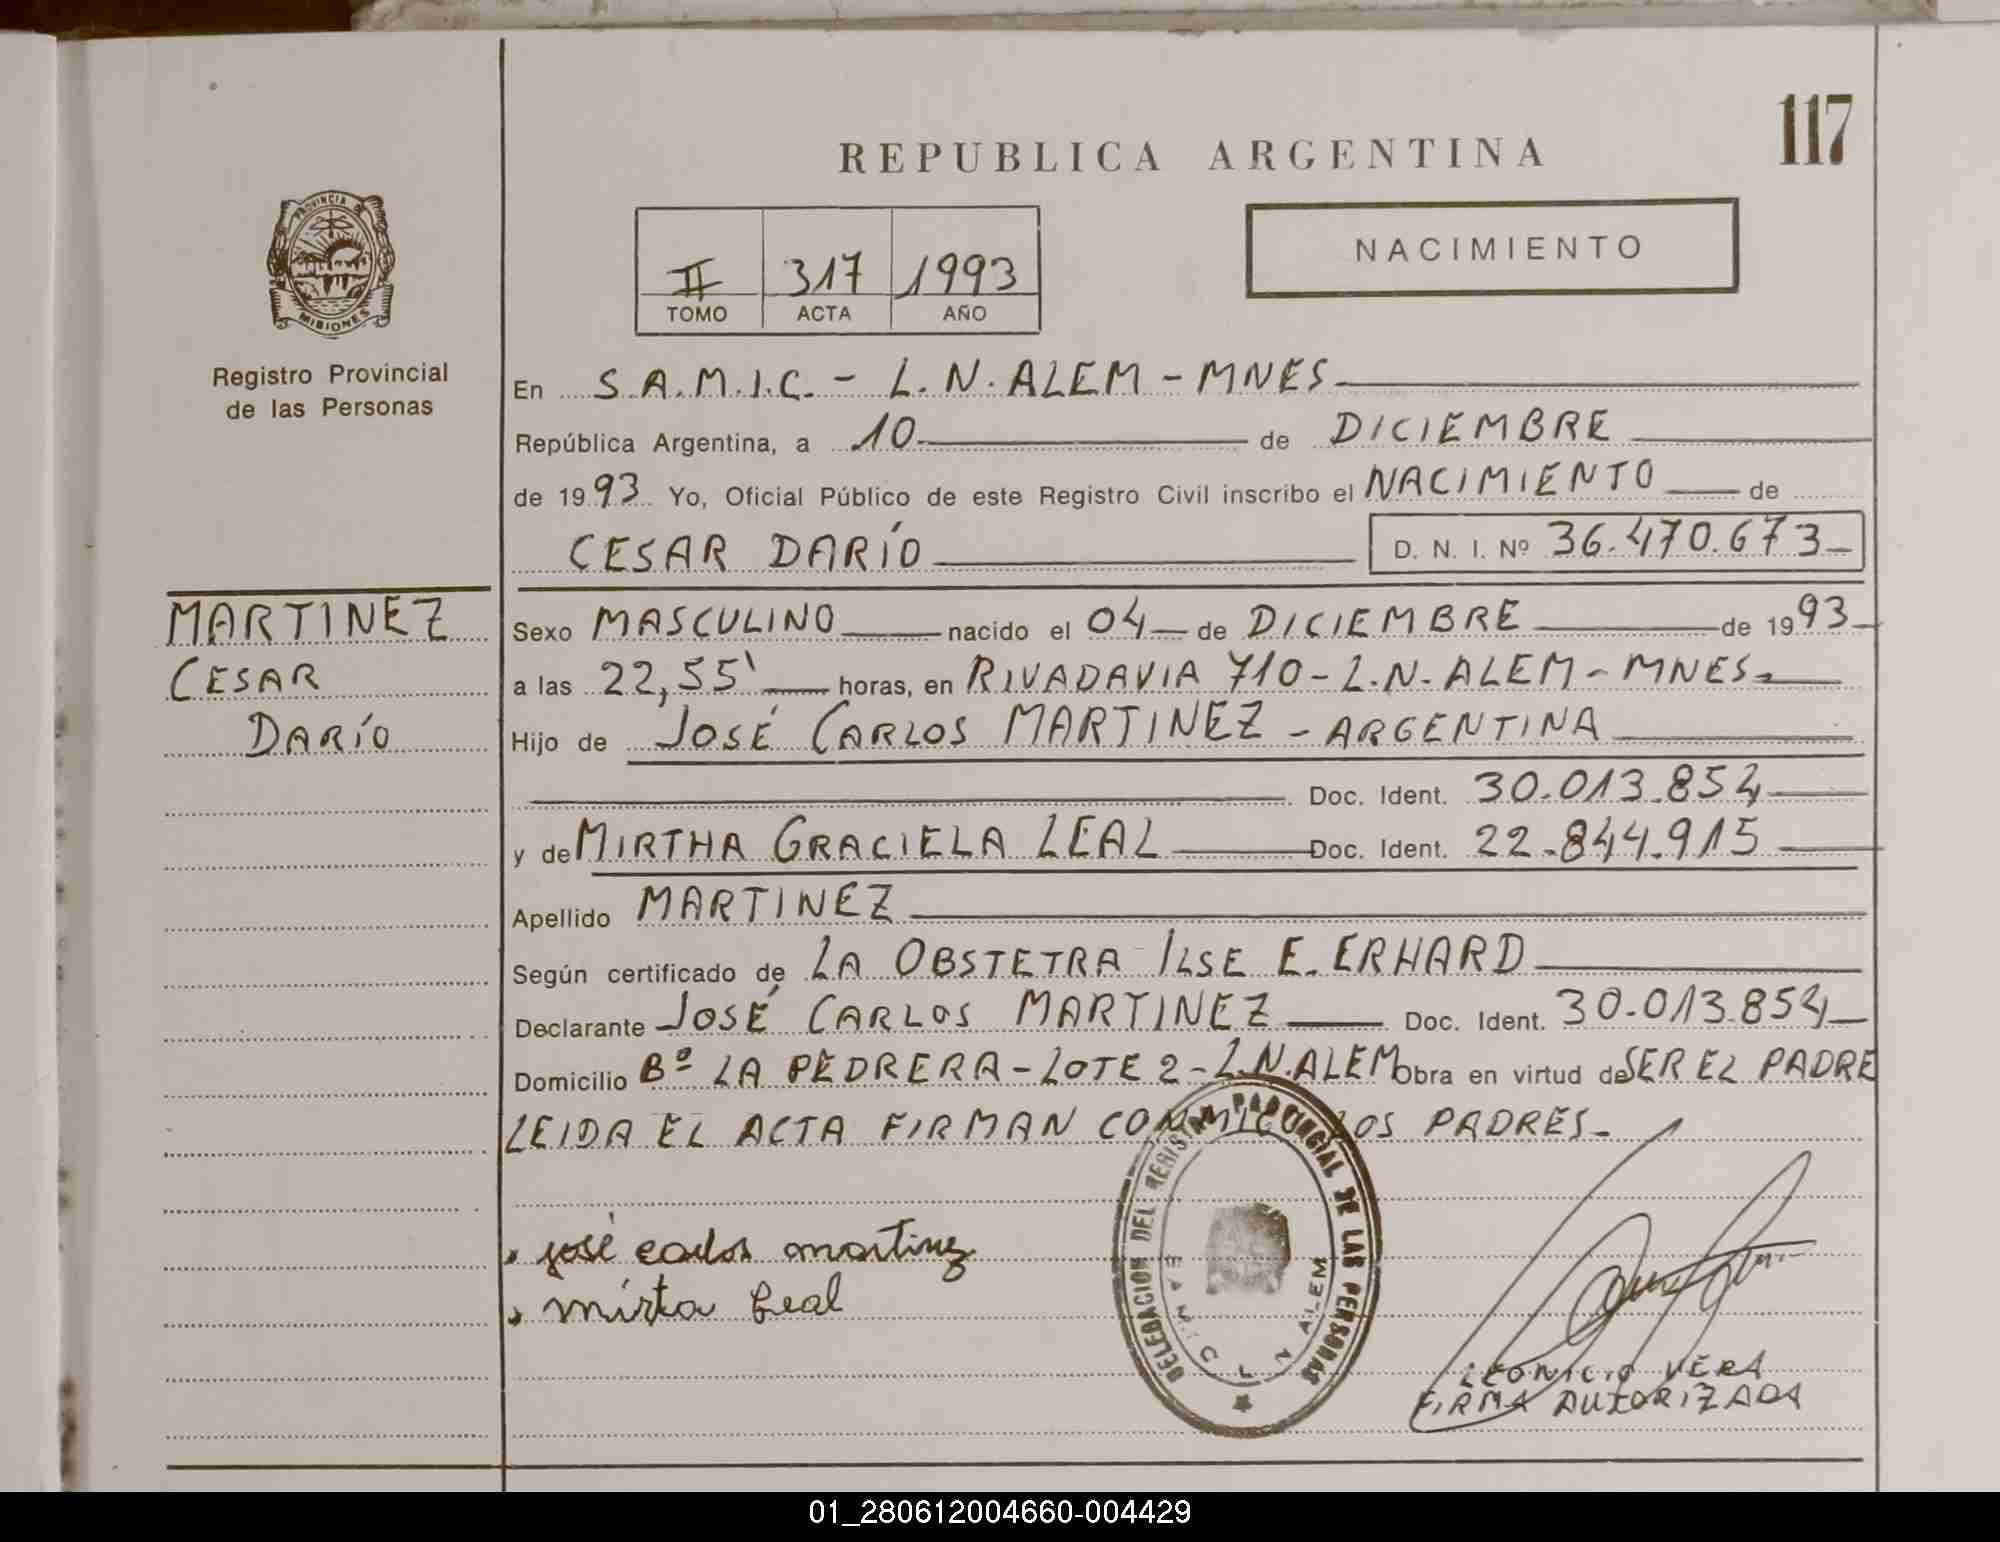 117
REPUBLICA ARGENTINA
PROVINCIA DE
MISIONES
Registro Provincial
de las Personas
NACIMIENTO
II 317 1993
TOMO ACTA AÑO
En S.A.M.I.C. - L.N. ALEM - MNES
República Argentina, a 10 de DICIEMBRE
de 1993 Yo, Oficial Público de este Registro Civil inscribo el NACIMIENTO de
CESAR DARÍO D. N. I. Nº 36.470.673
MARTINEZ
CESAR
DARÍO
Sexo MASCULINO nacido el 04 de DICIEMBRE de 1993
a las 22,55' horas, en RIVADAVIA 710 - L.N. ALEM - MNES.
Hijo de JOSÉ CARLOS MARTINEZ - ARGENTINA
Doc. Ident. 30.013.854
y de MIRTHA GRACIELA LEAL Doc. Ident. 22.844.915
Apellido MARTINEZ
Según certificado de LA OBSTETRA ILSE E. ERHARD
Declarante JOSÉ CARLOS MARTINEZ Doc. Ident. 30.013.854
Domicilio Bº LA PEDRERA - LOTE 2 - L.N. ALEM Obra en virtud de SER EL PADRE
LEIDA EL ACTA FIRMAN CONMIGO LOS PADRES.
josé carlos martinez
mirta Leal
DELEGACION DEL REGISTRO PROVINCIAL DE LAS PERSONAS
L N ALEM
LEONICIO VERA
FIRMA AUTORIZADA
01_280612004660-004429